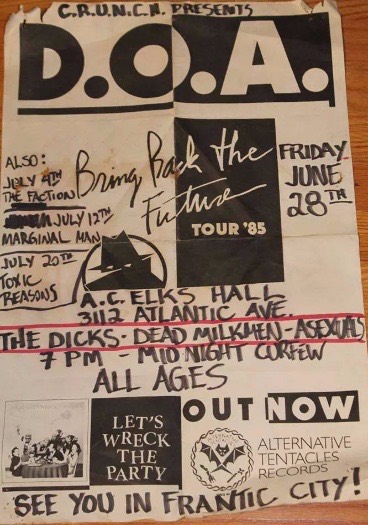 C.R.U.N.C.H. PRESENTS
D.O.A.
Bring Back the
Future
TOUR '85
FRIDAY
JUNE
28TH
ALSO:
JULY 4TH
THE FACTION
JULY 12TH
MARGINAL MAN
JULY 20TH
TOXIC
REASONS
A.C. ELKS HALL
3112 ATLANTIC AVE.
THE DICKS - DEAD MILKMEN - ASEXUALS
7 PM - MIDNIGHT CURFEW
ALL AGES
LET'S
WRECK
THE
PARTY
OUT NOW
ALTERNATIVE
TENTACLES
RECORDS
SEE YOU IN FRANTIC CITY!